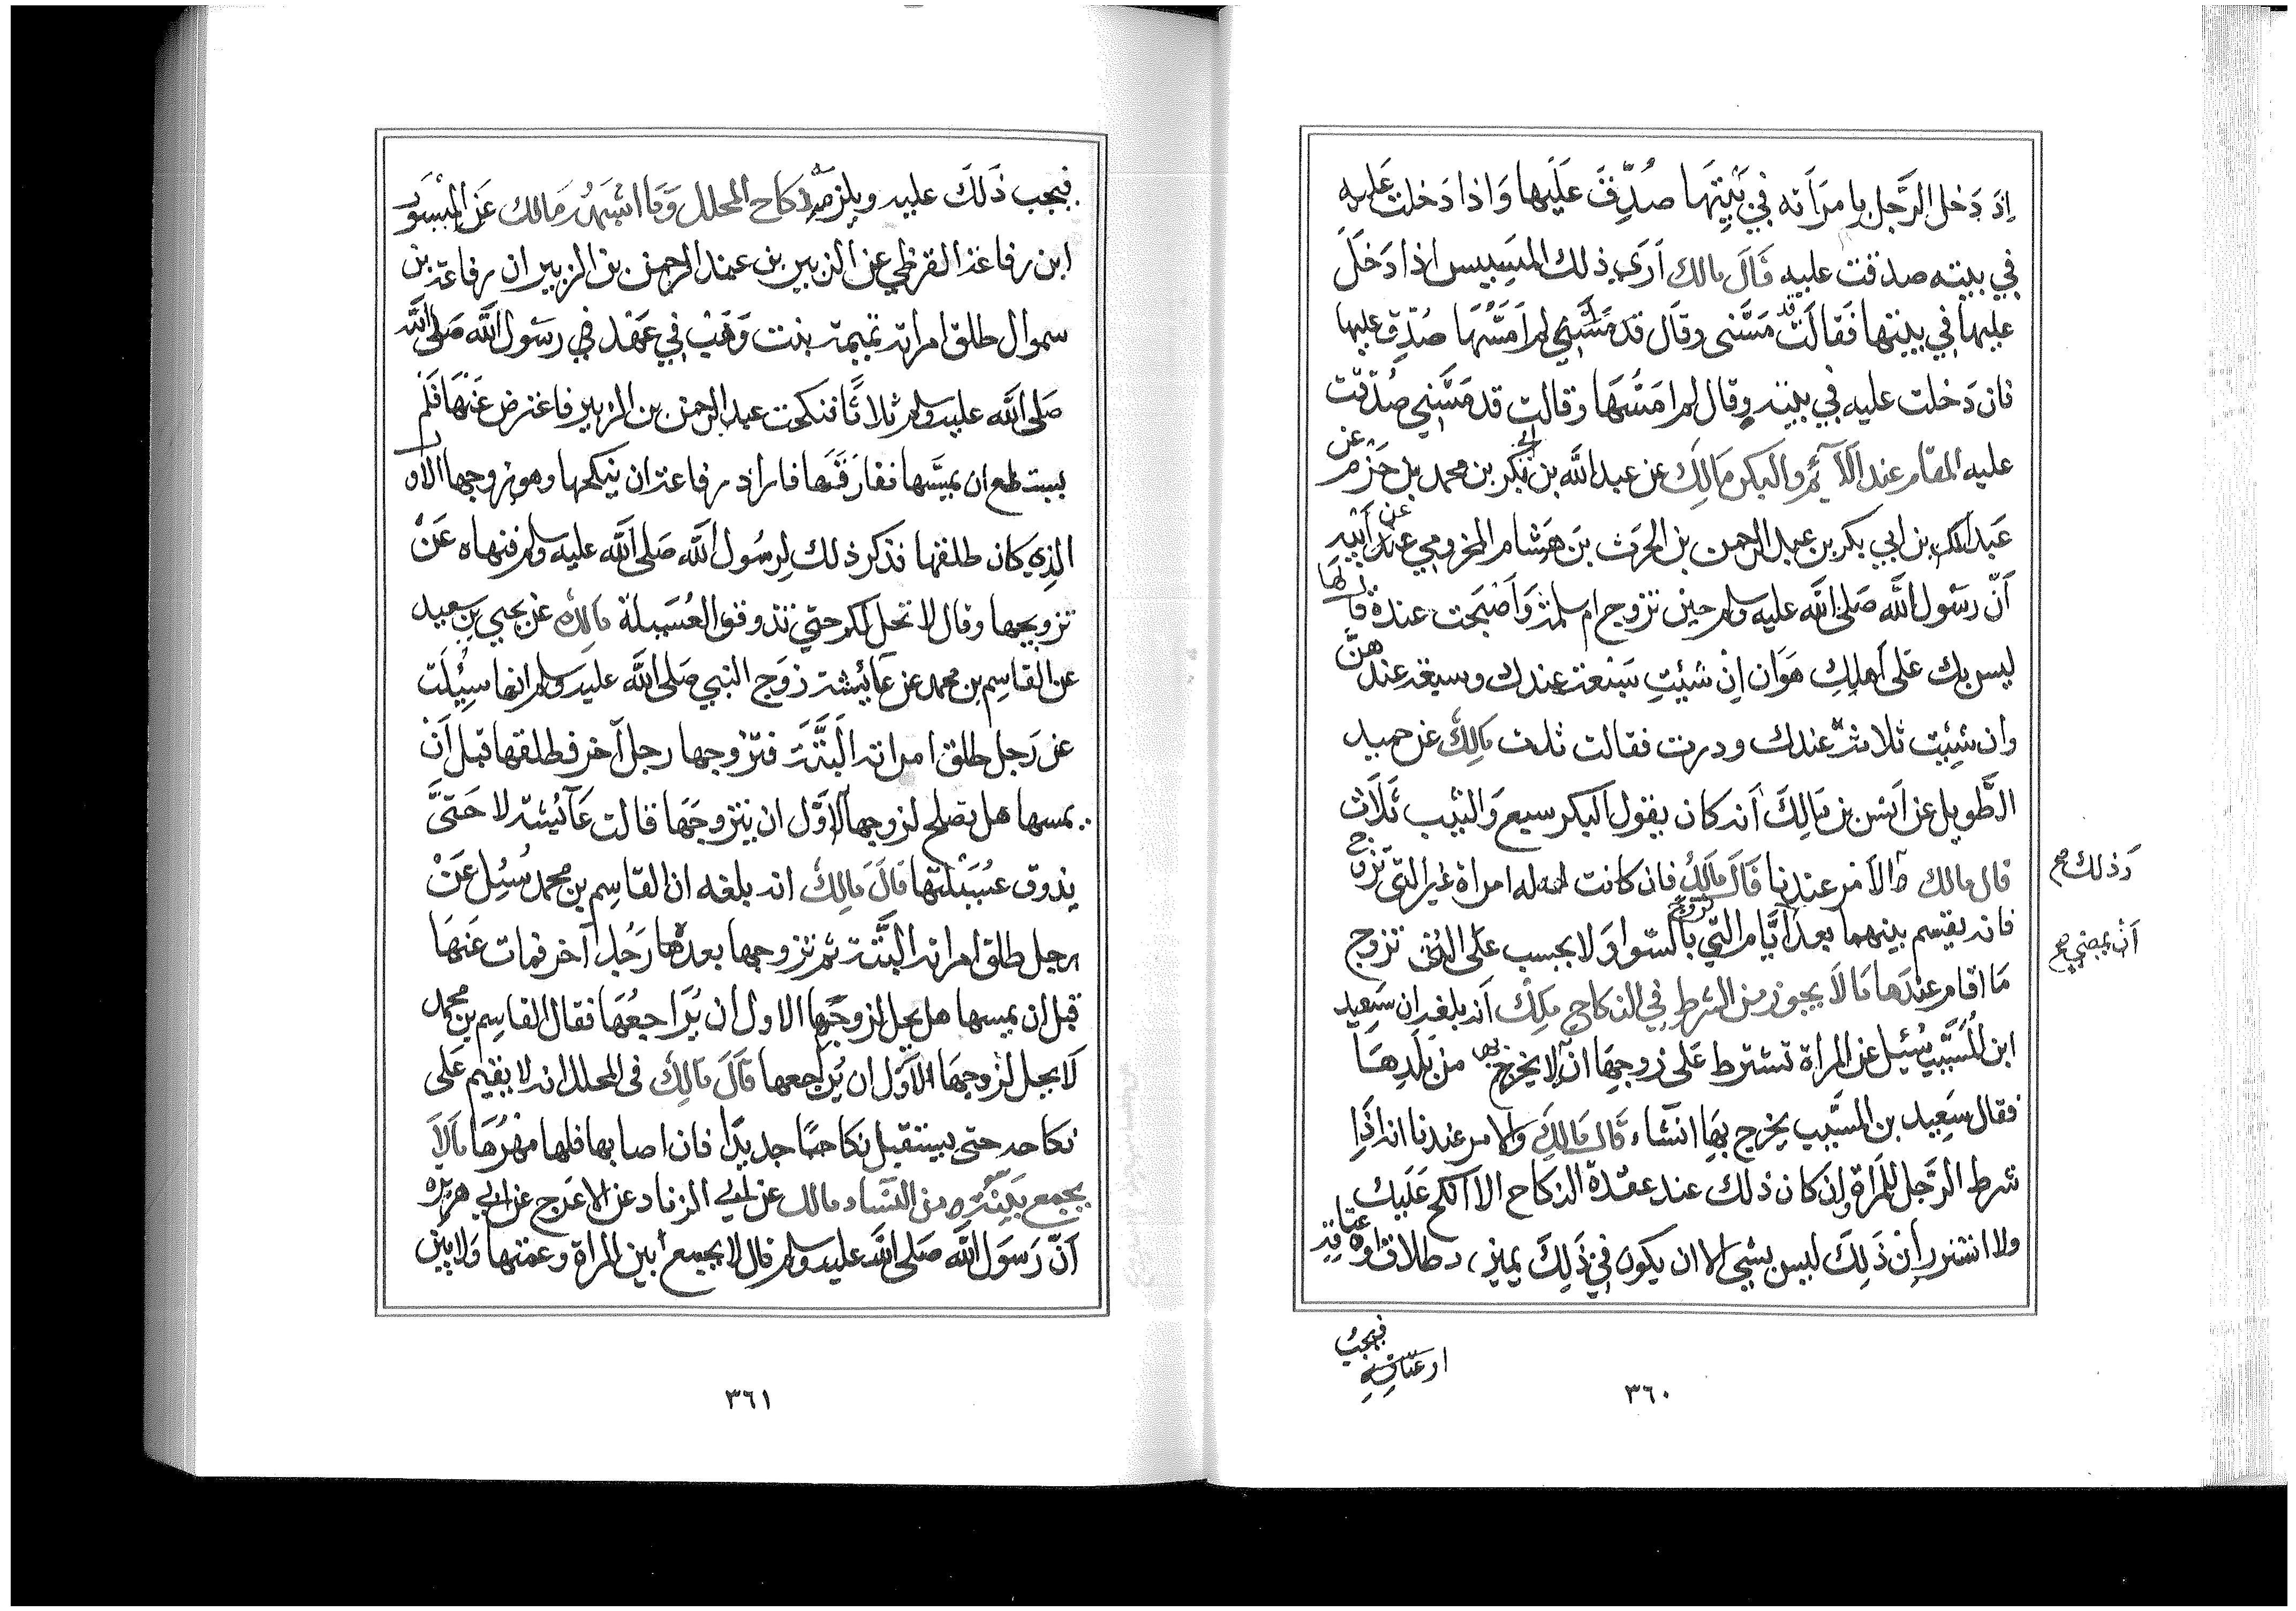 إذَ دَخل الرَّجل بامرَأته في بَيْتِهَا صُدِّقَ عَلَيها وَاذا دَخلت عَليه
في بيته صدقت عليه قَالَ مالك اَرَي ذلك المَسِيس اذا دَخَلَ
عليها في بيتها فَقالَت قد مَسَّنى وقال قد مَسَّتني لم اَمَسَّهَا صُدِّق عليها
فان دَخلت عليه في بيته وقال لم امَسَّهَا وقالت قد مَسَّني صُدّقت
عليه المقام عند الاَيِّم والبكر مَالِك عن عبد الله بن ابي بكر بن محمد بن حَزم عن
عَبد الملك بن ابي بكر بن عبد الرحمن بن الحرث بن هشام المخزومي عن اَبيه
اَنّ رسَول الله صَلى الله عليه وسلم حين تزوج ام سلمة وَاَصْبَحت عنده قال لها
ليس بك عَلى اَهلِكِ هَوَان اِنْ شئِتِ سَبّعت عندك وسبعت عندهنَّ
وان شِئِت ثلاثت عندك ودرت فقالت ثلث مَالِكُ عن حميد
الطَّويل عن اَنس بن مَالِكَ اَنه كان يقول اَلبكر سبع وَالثيب ثَلَاث
قال مالك وَذلك الاَمْر عندنا قَالَ مَالِكُ فان كانت له امراة غير التي تزوج
فانه يقسم بينهما بعد اَن يمضي اَيَّام التي تزوج بالسَّوا وَلا يحسب على التي تزوج
مَا اقام عندَها مَا لاَ يجوز من الشرط في النكاح مٰلِك اَنه بلغه ان سَعِيد
ابن المُسَيَّب سُئِل عن المراة تشترط عَلى زوجهَا ان لا يخرج بها من بَلَدِهَا
فقال سَعِيد بن المسَّيب يخرج بهَا ان شَاء قَال مَالِك وَالامر عندنا انه اذَا
شرط الرَّجل للمَراة وان كان ذلك عند عقدة النكاح الا انكح عَلَيك
ولا اتسرر ان ذَلِكَ ليس بشي الا ان يكون في ذَلِكَ يمين بطلاق او عتاقه
فيجب
او عتاقة
٣٦٠
فيجب ذَلكَ عليه ويلزمه نكاح المحلل وَمَا اشبَهَهُ مَالك عَن المِسْوَر
ابن رفاعة القرظي عن الزبير بن عبد الرحمن بن الزبير ان رفاعة بن
سموال طلق امراته تميمة بنت وَهْب في عَهْد في رسَول الله صَلى الله
صَلى الله عليه وسلم ثلاثًا فنكحت عبد الرحمن بن الزبير فاعترض عَنْهَا فَلَم
يستطع ان يمسَّها ففارَقَهَا فاراد رفاعة ان ينكحها وهو زوجها الاَول
الذِي كان طلقها فذكر ذلك لِرسُول الله صَلى الله عليه وسلم فنهاه عَنْ
تزويجها وقال لا تحل لكم حتي تذوقق العُسَيلة مَالِك عن يحيي بن سعيد
عن القاسِم بن محمد عن عَائيشة زوَج النبي صَلى الله عليه وسلم انها سئِلت
عن رَجل طلق امراته البَتَّة فتزوجها رجل آخر فطلقها قبل اَنْ
يمسها هل يصلح لزوجها الاَوَّل ان يتزوجَهَا قالت عَآئيشة لا حَتىَّ
يذوق عسَيلتها قَالَ مَالِك انه بلغه ان القاسِم بن محمد سُئِل عَنْ
رجل طلق امراته البَتَّة ثم تزوجها بعده رَجُل آخر فمات عَنهَا
قبل ان يمسها هل يحل لزوجَهِا الاول ان يُرَاجعُهَا فقال القاسِم بن محمد
لَا يحل لزوجهَا الاَوّل ان يُرَاجعها قَالَ مَالِكُ في المحلل انه لا يقيم عَلى
نكاحه حتى يستقبل نكاحًا جديدًا فان اصابها فلها مهْرُهَا مَا لَا
يجمع بَيْنهُ من النسَاء مالك عن ابي الزناد عن الاعرَج عن ابي هريره
اَنّ رَسَول الله صَلى الله عليه وسلم قال لا يجمع بين المراة وعمتها وَلا بيَن
٣٦١
وَذلك صح
اَن يمضي صح